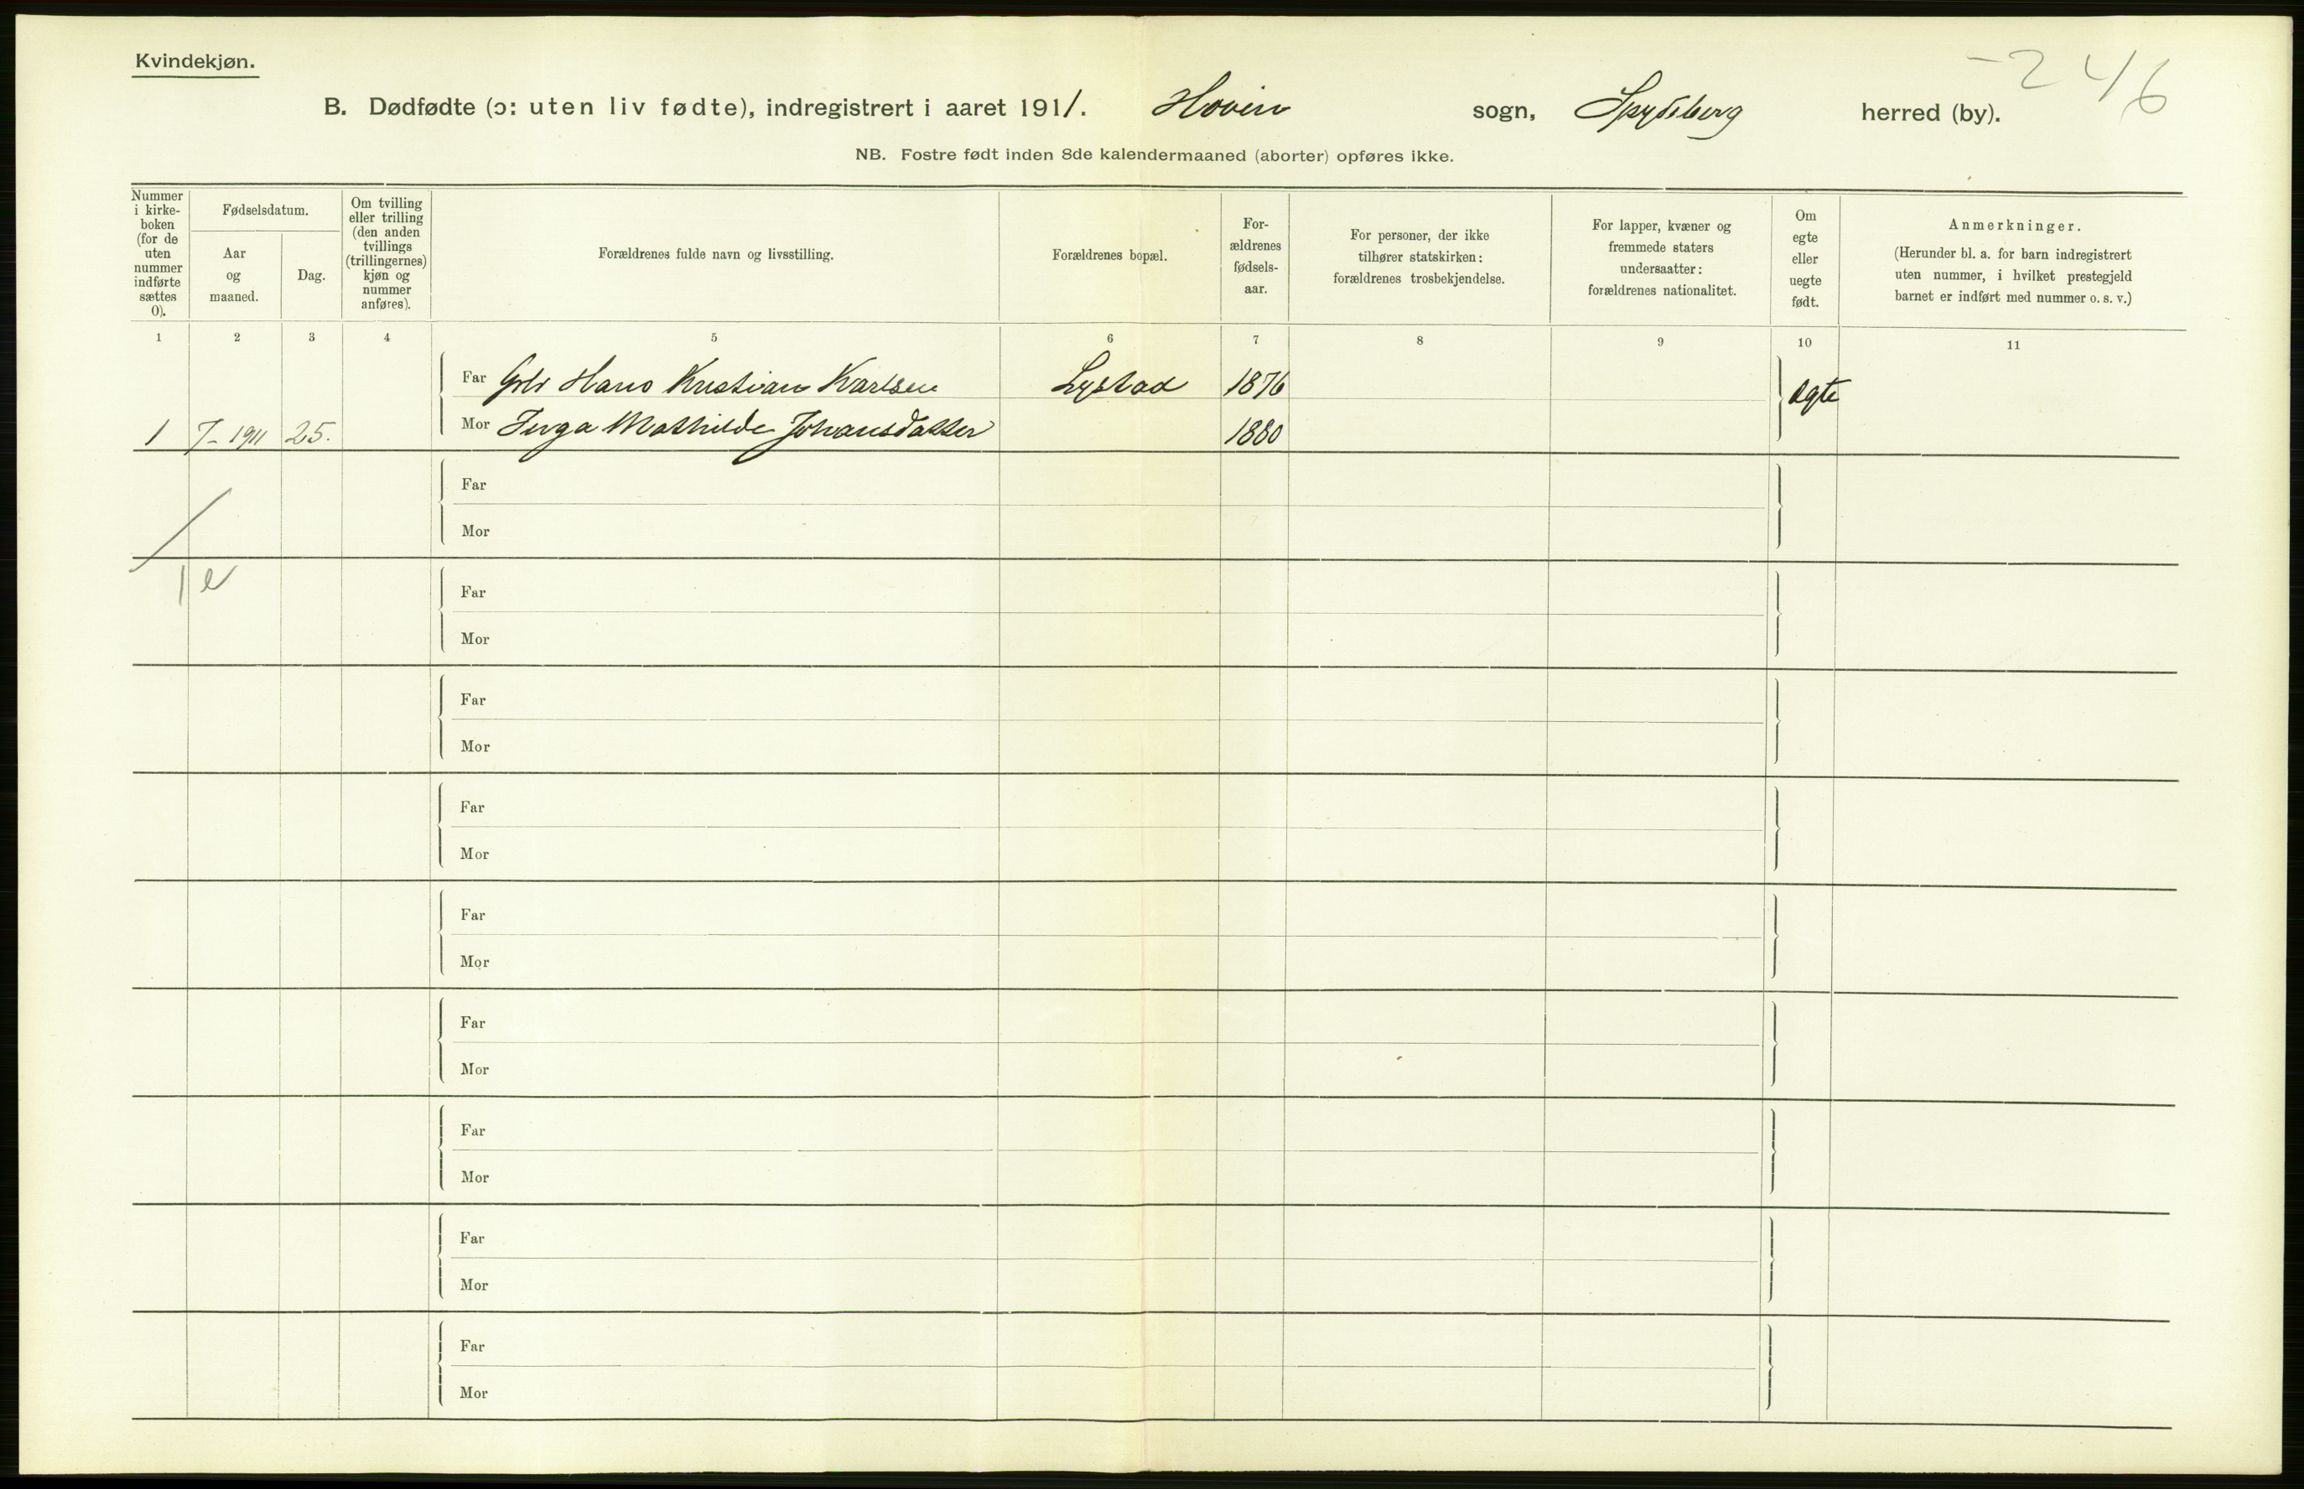 Kvindekjøn.
-246
B. Dødfødte (ɔ: uten liv fødte), indregistrert i aaret 1911. Hovin sogn, Spydeberg herred (by).
NB. Fostre født inden 8de kalendermaaned (aborter) opføres ikke.
Nummer
i kirke-
boken
(for de
uten
nummer
indførte
sættes
0).
Fødselsdatum.
Aar
og
maaned.
Dag.
Om tvilling
eller trilling
(den anden
tvillings
(trillingernes)
kjøn og
nummer
anføres).
Forældrenes fulde navn og livsstilling.
Forældrenes bopæl.
For-
ældrenes
fødsels-
aar.
For personer, der ikke
tilhører statskirken:
forældrenes trosbekjendelse.
For lapper, kvæner og
fremmede staters
undersaatter:
forældrenes nationalitet.
Om
egte
eller
uegte
født.
Anmerkninger.
(Herunder bl. a. for barn indregistrert
uten nummer, i hvilket prestegjeld
barnet er indført med nummer o. s. v.)
1 2 3 4 5 6 7 8 9 10 11
Far Hans Kristian Karlsen Lystad 1876 Egte
1 7-1911 25. Mor Inga Mathilde Johansdatter 1880
Far
Mor
1 e
Far
Mor
Far
Mor
Far
Mor
Far
Mor
Far
Mor
Far
Mor
Far
Mor
Far
Mor